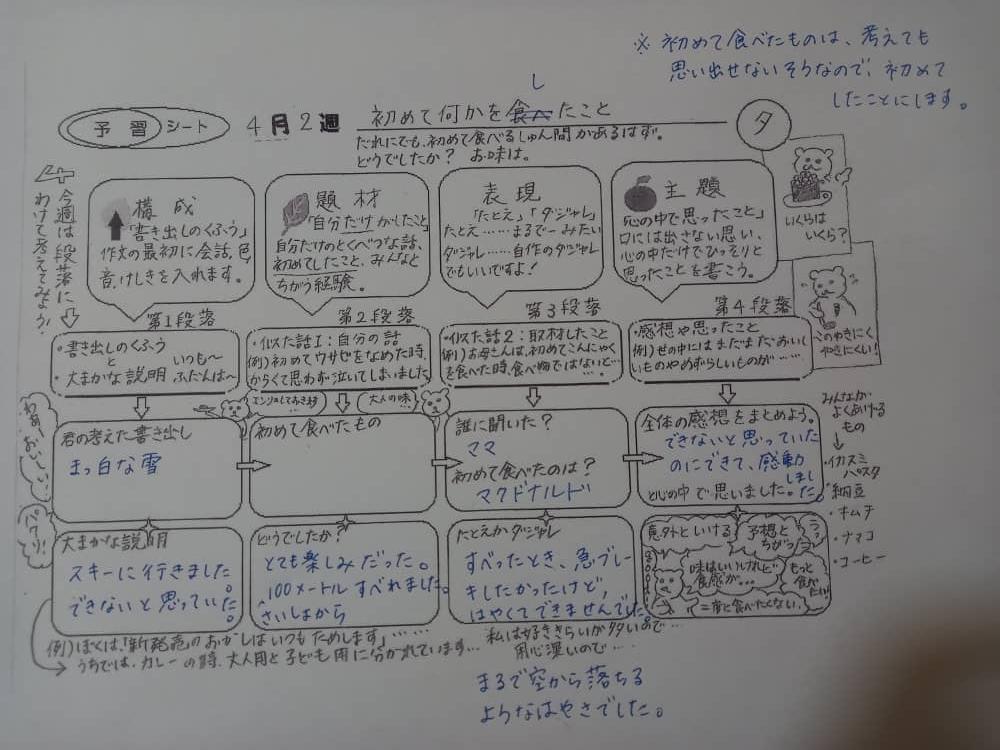 ※初めて食べたものは、考えても
思い出せないそうなので、初めて
したことにします。
予習シート
4月2週
初めて何かを食べたこと
し
タ
だれにでも、初めて食べるしゅん間があるはず。
どうでしたか？ お味は。
今週は段落に
わけて考えてみよう！
構成
「書き出しのくふう」
作文の最初に会話、色、
音、けしきを入れます。
題材
「自分だけがしたこと」
自分だけのとくべつな話、
初めてしたこと、みんなと
ちがう経験。
表現
「たとえ」「ダジャレ」
たとえ……まるで〜みたい
ダジャレ……自作のダジャレ
でもいいですよ！
主題
「心の中で思ったこと」
口には出さない思い、
心の中だけでひっそりと
思ったことを書こう。
いくらは
いくら？
このやきにく
やきにくい！
第1段落
・書き出しのくふう
と
・大まかな説明
いつも〜
ふだんは〜
第2段落
・似た話1：自分の話
例）初めてワサビをなめた時、
からくて思わず泣いてしまいました
第3段落
・似た話2：取材したこと
例）お母さんは、初めてこんにゃく
を食べた時、食べ物ではないと…
第4段落
・感想や思ったこと
例）世の中にはまだまだおいし
いものやめずらしいものが……
わぁ、おいしい
パクリ！
大人の味
君の考えた書き出し
まっ白な雪
初めて食べたもの
誰に聞いた？
ママ
初めて食べたのは？
マクドナルド
全体の感想をまとめよう。
できないと思っていた
のにできて、感動
しまし
た。
と心の中で思いました。
みんなが
よくあげる
もの
・イカスミ
パスタ
・納豆
・キムチ
・ナマコ
・コーヒー
大まかな説明
スキーに行きました。
できないと思っていた。
どうでしたか？
とても楽しみだった。
100メートルすべれました。
さいしょから
たとえかダジャレ
すべったとき、急ブレー
キしたかったけど、
はやくてできませんでした
意外といける
予想と
ちがう
味はいいけれど
食感が…
もっと
食べたい
二度と食べたくない
例）ぼくは、「新発売のおかしはいつもためします」……
うちでは、カレーの時、大人用と子ども用に分かれています…
私は好ききらいが多いので…
用心深いので…
まるで空から落ちる
ようなはやさでした。